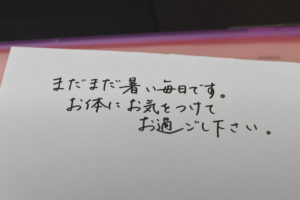 まだまだ暑い毎日です。
お体にお気をつけて
お過ごし下さい。